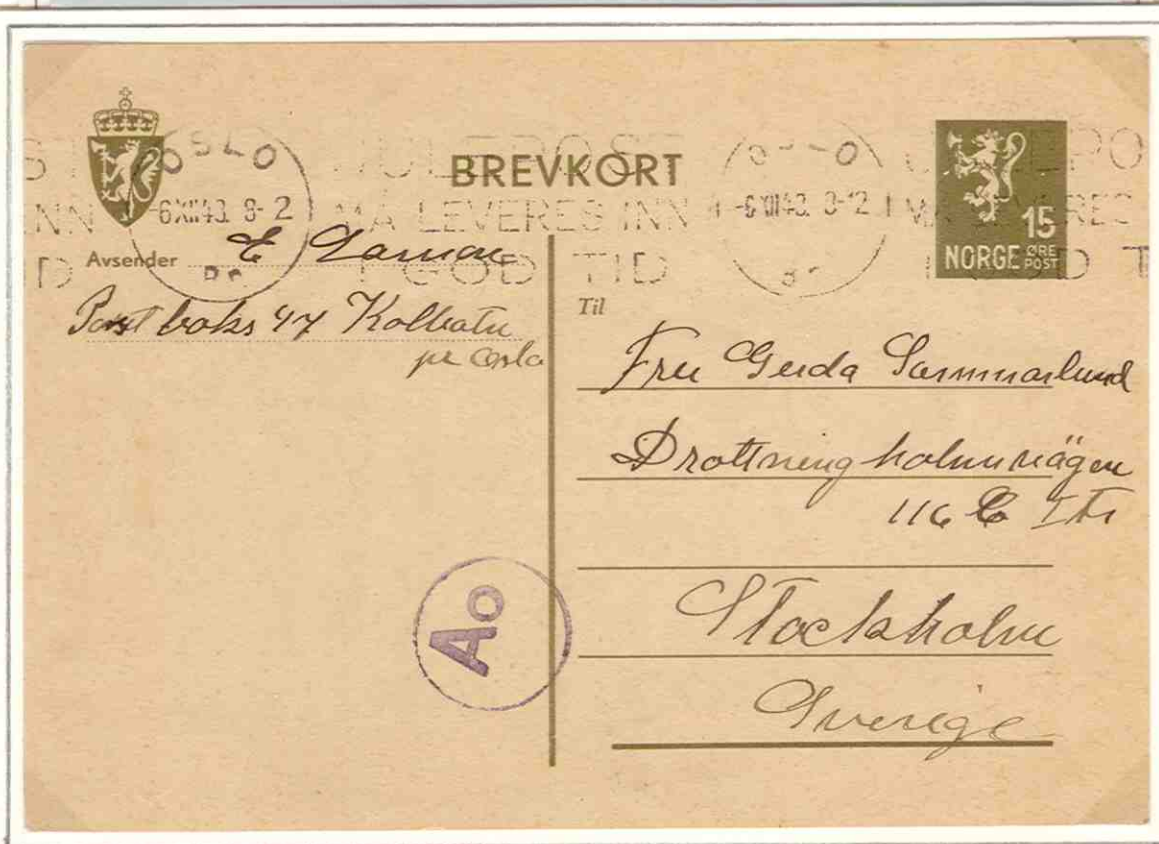 BREVKORT
OSLO
6 XII 43. 8-2
JULEPOST
MÅ LEVERES INN
I GOD TID
OSLO
-6 XII 43. 8-12
15
NORGE ØRE POST
Avsender E
Post boks 47 Kolbotn
pr Oslo
Til
Fru Gerda Sammarlund
Drottningholmsvägen
116 I tr
Stockholm
Sverige
Ao